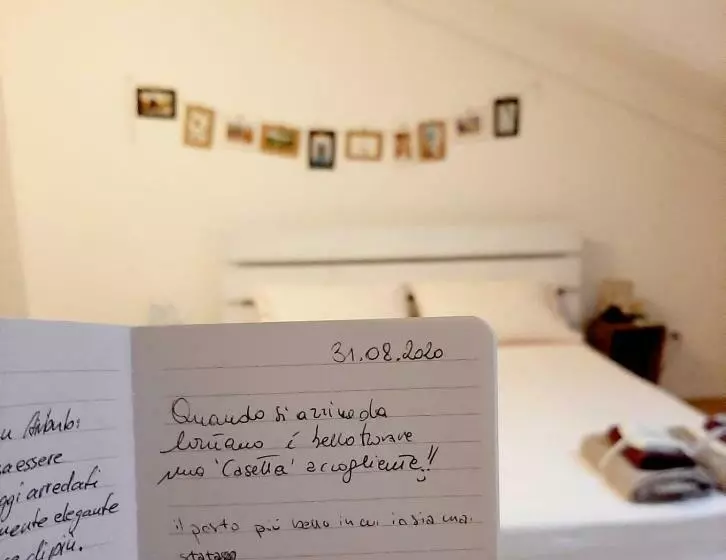 u Airbnb:
sa essere
ggi arredati
mente elegante
di più.
31.08.2020
Quando si arriva da
lontano è bello trovare
una 'Casetta' accogliente!!
il posto più bello in cui io sia mai
stata